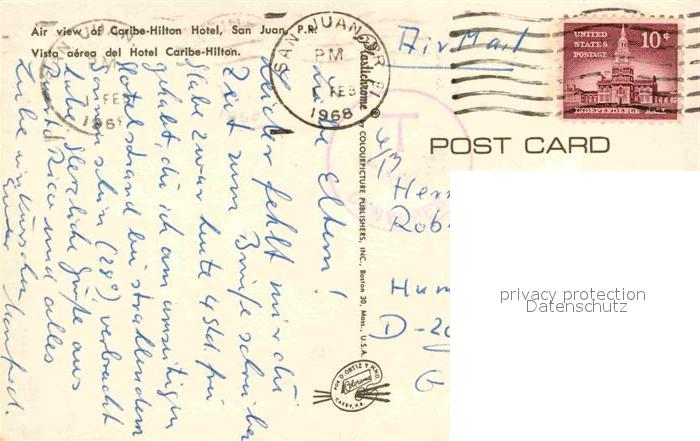 Air view of Caribe-Hilton Hotel, San Juan, P.R.
Vista aérea del Hotel Caribe-Hilton.
SAN JUAN, P.R.
PM
FEB
1968
SAN JUAN P.R.
PM
FEB
1968
Air Mail
UNITED
STATES
POSTAGE
10¢
INDEPENDENCE HALL
Plastichrome ®
BY COLOURPICTURE PUBLISHERS, INC., Boston 30, Mass., U.S.A.
POST CARD
T
Liebe Eltern!
Leider fehlt mir die
Zeit zum Briefe schreiben
Habe zwar heute 4 Std. frei
gehabt, die ich am
Hotelstrand bei strahlendem
Sonnenschein (28°) verbracht
habe. Herzliche Grüße aus
Puerto Rico und alles
Liebe wünschen
Euer Manfred.
Herr
Rob
Hum
D-2
G
privacy protection
Datenschutz
FOR D. ORTIZ Y HNO.
CAYEY, P.R.